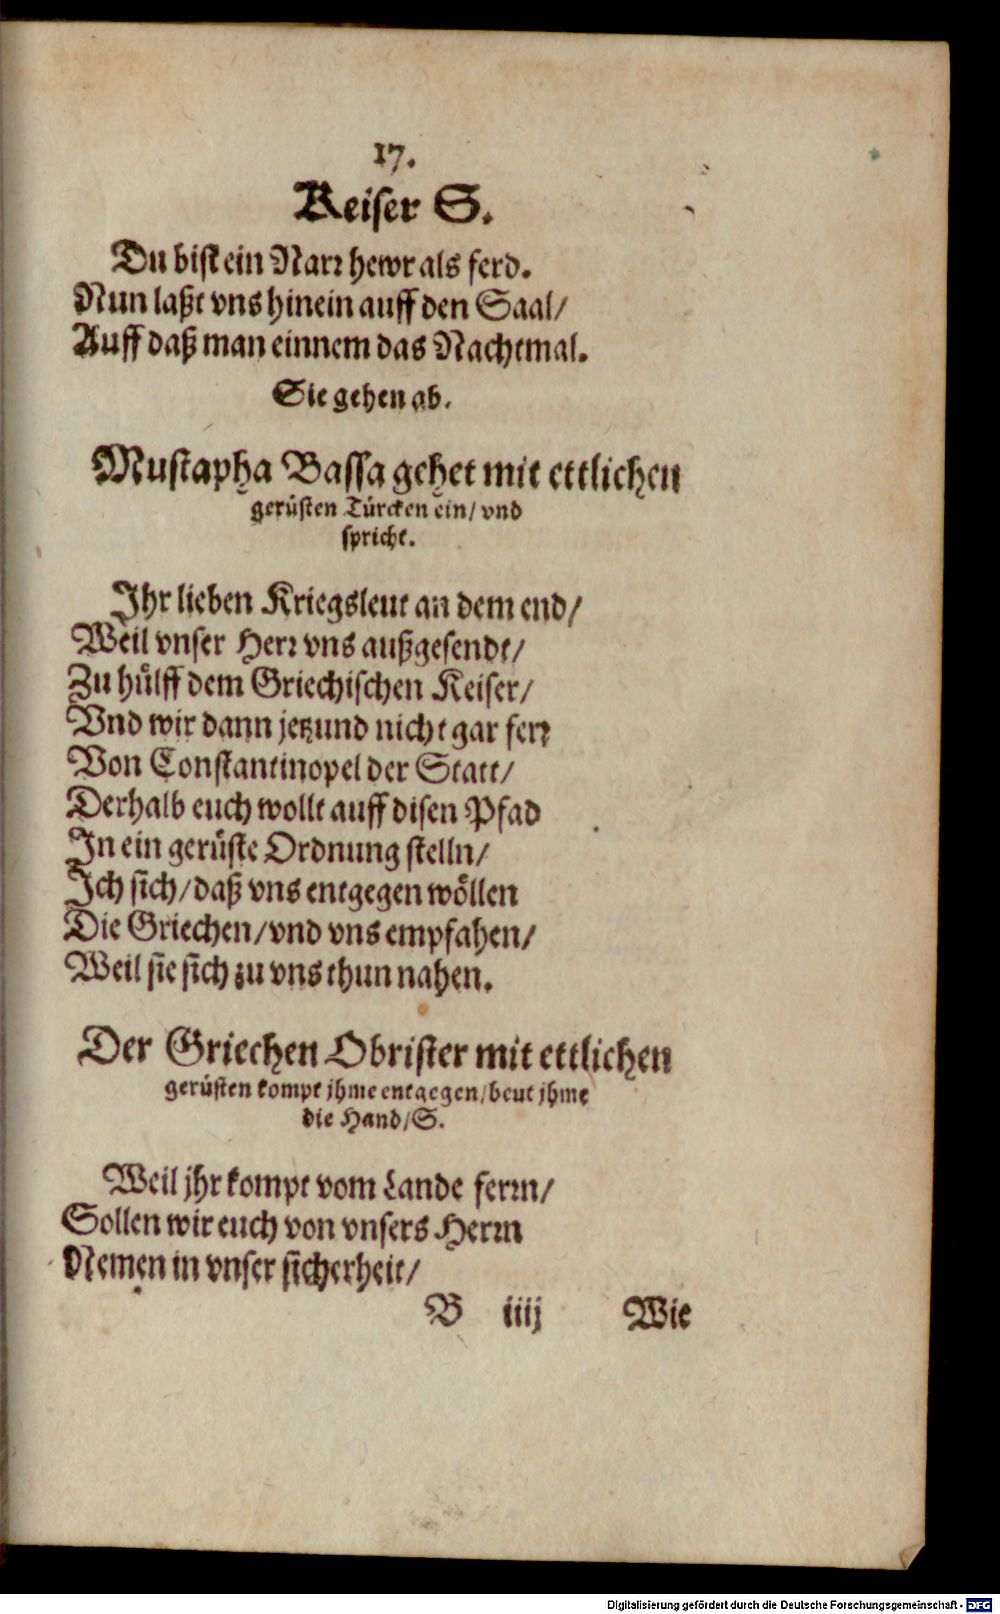 17.
Keiser S.
Du bist ein Narr hewr als ferd.
Nun laßt vns hinein auff den Saal/
Auff daß man einnem das Nachtmal.
Sie gehen ab.
Mustapha Bassa gehet mit ettlichen
gerüsten Türcken ein/ vnd
spricht.
Ihr lieben Kriegsleut an dem end/
Weil vnser Herr vns außgesendt/
Zu hülff dem Griechischen Keiser/
Vnd wir dann jetzund nicht gar ferr
Von Constantinopel der Statt/
Derhalb euch wollt auff disen Pfad
In ein gerüste Ordnung stelln/
Ich sich/ daß vns entgegen wöllen
Die Griechen/ vnd vns empfahen/
Weil sie sich zu vns thun nahen.
Der Griechen Obrister mit ettlichen
gerüsten kompt jhme entgegen/ beut jhme
die Hand/ S.
Weil jhr kompt vom Lande ferrn/
Sollen wir euch von vnsers Herrn
Nemen in vnser sicherheit/
B iiij Wie
Digitalisierung gefördert durch die Deutsche Forschungsgemeinschaft - DFG